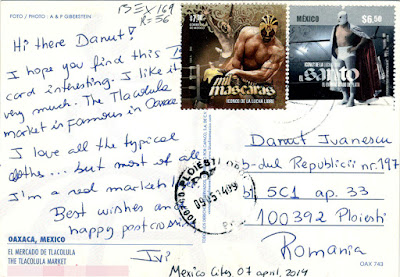 FOTO / PHOTO: A & P GIBERSTEIN
BEX 169
R=56
Hi there Danut!
I hope you find this
card interesting. I like it
very much. The Tlacolula
market is famous in Oaxaca
I love all the typical
clothes... but most of all
I'm a real market
Best wishes and
happy postcrossing
Ivi
OAXACA, MEXICO
EL MERCADO DE TLACOLULA
THE TLACOLULA MARKET
mil
máscaras
ICONOS DE LA LUCHA LIBRE
MÉXICO
$6.50
ICONOS DE LA LUCHA LIBRE
el santo
EL ENMASCARADO DE PLATA
PLOIESTI
09.05.14
Danut Ivanescu
bob-dul Republicii nr. 197
bl 5C1 ap. 33
100392 Ploiesti
Romania
OAX 743
Mexico City, 07 april, 2014